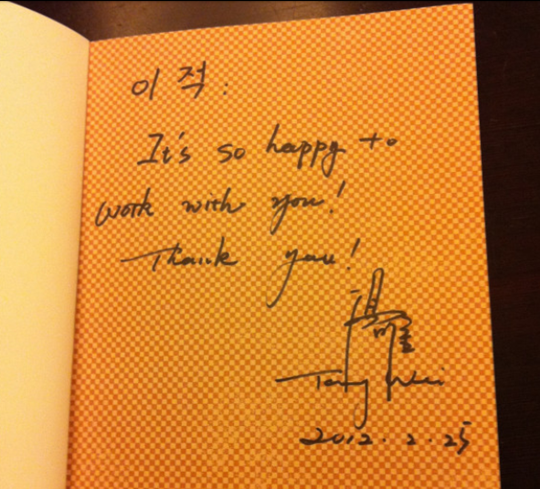 이적:
It's so happy to
work with you!
Thank you!
Tang Wei
2012.2.25